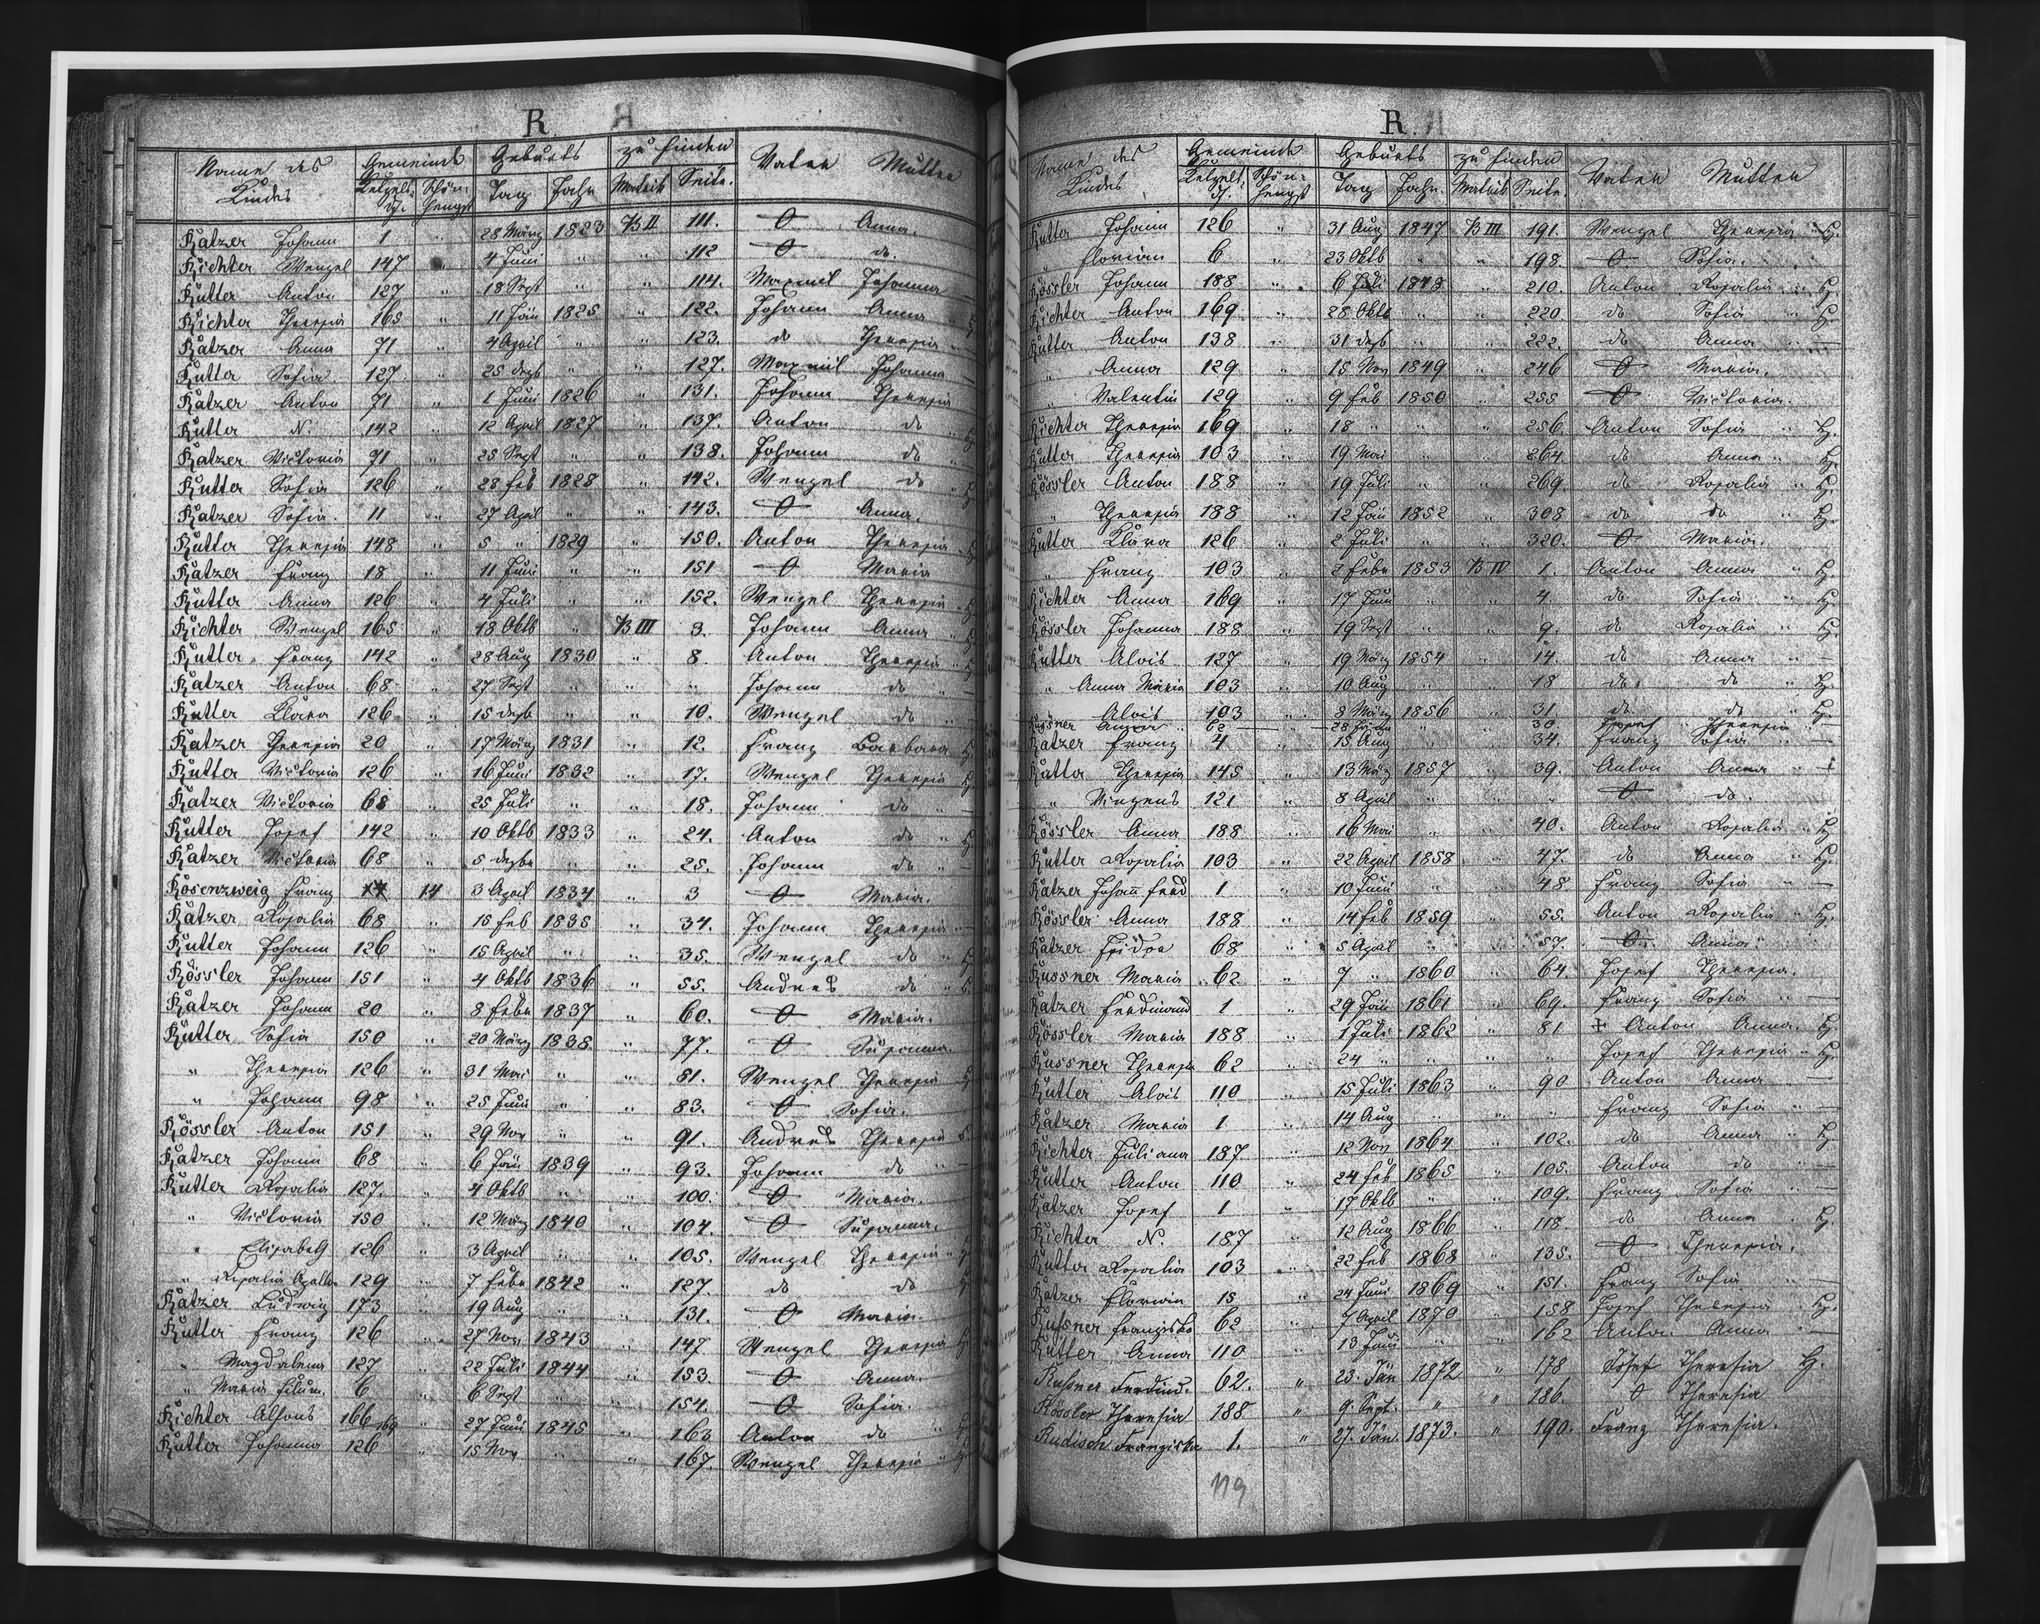 R
Name des Gemeinde Geburts zu finden Vater Mutter
Kindes Schön- Tag Jahr Matrik Seite.
hengst
Katzer Johann 1 " 28 März 1823 B II 111. O Anna.
Richter Wenzel 147 " 4 Juni " " 112 O do.
Rutter Anton 127 " 18 Sept " " 114. Maxmil Johanna
Richter Theresia 165 " 11 Jän 1825 " 122. Johann Anna
Ratzer Anna 71 " 4 April " " 123. do Theresia
Rutter Sofia 127 " 25 Dezb " " 127. Maxmil Johanna
Ratzer Anton 71 " 1 Juni 1826 " 131. Johann Theresia
Rutter N. 142 " 12 April 1827 " 137. Anton do
Ratzer Victoria 71 " 25 Sept " " 138. Johann do
Rutter Sofia 126 " 28 Feb 1828 " 142. Wenzel do
Ratzer Sofia. 11 " 27 April " " 143. O Anna.
Rutter Theresia 148 " 5 " 1829 " 150. Anton Theresia
Ratzer Franz 18 " 11 Juni " " 151 O Maria
Rutter Anna 126 " 4 Juli " " 152. Wenzel Theresia
Richter Wenzel 165 " 18 Oktb " B III 3. Johann Anna
Rutter Franz 142 " 28 Aug 1830 " 8. Anton Theresia
Ratzer Anton 68 " 27 Sept " " " Johann do
Rutter Klara 126 " 15 Dezb " " 10. Wenzel do
Ratzer Theresia 20 " 17 März 1831 " 12. Franz Barbara
Rutter Victoria 126 " 16 Juni 1832 " 17. Wenzel Theresia
Ratzer Victoria 68 " 25 Juli " " 18. Johann do
Rutter Josef 142 " 10 Oktb 1833 " 24. Anton do
Ratzer Victoria 68 " 5 Dezbr " " 25. Johann do
Rosenzweig Franz 14 3 April 1834 " 3 O Maria.
Ratzer Rosalia 68 " 15 Feb 1835 " 34. Johann Theresia
Rutter Johann 126 " 15 April " " 35. Wenzel do
Rössler Johann 151 " 4 Oktb 1836 " 55. Andreas do
Ratzer Johann 20 " 8 Febr 1837 " 60. O Maria.
Rutter Sofia 150 " 20 März 1838 " 77. O Susanna.
" Theresia 126 " 31 Mai " " 81. Wenzel Theresia
" Johann 98 " 25 Juni " " 83. O Sofia.
Rössler Anton 151 " 29 Nov " " 91. Andreas Theresia
Ratzer Johann 68 " 6 Jän 1839 " 93. Johann do
Rutter Rosalia 127. " 4 Oktb " " 100. O Maria.
" Victoria 150 " 12 März 1840 " 104. O Susanna.
" Elisabeth 126 " 3 April " " 105. Wenzel Theresia
" Rosalia 129 " 7 Febr 1842 " 127. do do
Ratzer Ludwig 173 " 19 Aug " " 131. O Maria.
Rutter Franz 126 " 27 Nov 1843 " 147. Wenzel Theresia
" Magdalena 127 " 22 Juli 1844 " 153 O Anna.
" Maria Filum. 6 " 6 Sept " " 154. O Sofia.
Richter Alfons 166 169 " 27 Juni 1845 " 163 Anton do
Rutter Johanna 126 " 15 Nov " " 167. Wenzel Theresia
R
Name des Gemeinde Geburts zu finden Vater Mutter
Kindes Schön- Tag Jahr. Matrik Seite.
hengst
Rutter Johann 126 " 31 Aug 1847 B III 191. Wenzel Theresia " H.
" Florian 6 " 23 Oktb " " 198. O Sofia.
Rössler Johann 188 " 6 Juli 1848 " 210. Anton Rosalia " H
Richter Anton 169 " 28 Oktb " " 220 do Sofia " H.
Rutter Anton 138 " 31 Dezb " " 222. do Anna " —
" Anna 129 " 15 Nov 1849 " 246 O Maria.
" Valentin 129 " 9 Feb 1850 " 255 O Victoria.
Richter Theresia 169 " 18 " " " 256 Anton Sofia " H.
Rutter Theresia 103 " 19 Mai " " 264 do Anna " H.
Rössler Anton 188 " 19 Juli " " 269. do Rosalia " H.
" Theresia 188 " 12 Jän 1852 " 308 do do " H.
Rutter Klara 126 " 2 Juli " " 320. O Maria.
" Franz 103 " 2 Febr 1853 B IV 1. Anton Anna " H.
Richter Anna 169 " 17 Juni " " 4. do Sofia " H.
Rössler Johanna 188 " 19 Sept " " 9. do Rosalia " H.
Rutter Alois 127 " 19 März 1854 " 14. do Anna " —
" Anna Maria 103 " 10 Aug " " 18 do do " H.
" Alois 103 " 8 März 1856 " 31. do do " H.
Russner 62 " 28 " " 30. Josef Theresia
Ratzer Franz 4 " 15 Aug " " 34. Franz Sofia " —
Rutter Theresia 145 " 13 März 1857 " 39. Anton Anna "
" Vinzens 121 " 8 April " " " O do.
Rössler Anna 188 " 16 Mai " " 40. Anton Rosalia " H
Rutter Rosalia 103 " 22 April 1858 " 47. do Anna " H.
Ratzer Johann Ferd 1 " 10 Juni " " 48. Franz Sofia " —
Rössler Anna 188 " 14 Feb 1859 " 55. Anton Rosalia " H.
Ratzer Isidor 68 " 5 April " " 57. O Anna
Russner Maria 62 " 7 " 1860 " 64. Josef Theresia.
Ratzer Ferdinand 1 " 29 Jän 1861 " 69. Franz Sofia " —
Rössler Maria 188 " 1 Juli 1862 " 81 Anton Anna. H
Russner Theresia 62 " 24 " " " " Josef Theresia " H.
Rutter Alois 110 " 15 Juli 1863 " 90 Anton Anna
Ratzer Maria 1 " 14 Aug " " " Franz Sofia " —
Richter Juliana 187 " 12 Nov 1864 " 102. do Anna " H
Rutter Anton 110 " 24 Feb 1865 " 105. Anton do " —
Ratzer Josef 1 " 17 Oktb " " 109. Franz Sofia "
Richter N. 187 " 12 Aug 1866 " 118 do Anna " H.
Rutter Rosalia 103 " 22 Feb 1868 " 135. O Theresia.
Ratzer Florian 15 " 24 Juni 1869 " 151. Franz Sofia " —
Russner Franziska 62 " 7 April 1870 " 158 Josef Theresia H.
Rutter Anna 110 " 13 Juni " " 162 Anton Anna " —
Russner Ferdind. 62. " 23. Jän 1872 " 178 Josef Theresia H.
Rössler Theresia 188 " 9. Sept. " " 186. O Theresia
Rudisch Franziska 1. " 27. Jän. 1873. " 190. Franz Theresia.
119